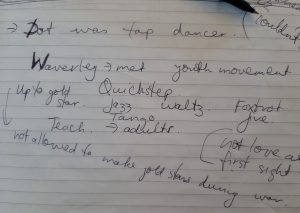 couldn't
→ Dot was tap dancer.
Waverley → met youth movement
Up to gold star. Quickstep
Jazz waltz. Foxtrot
Tango jive
Teach → adults.
not allowed to make gold stars during war.
not love at
first sight